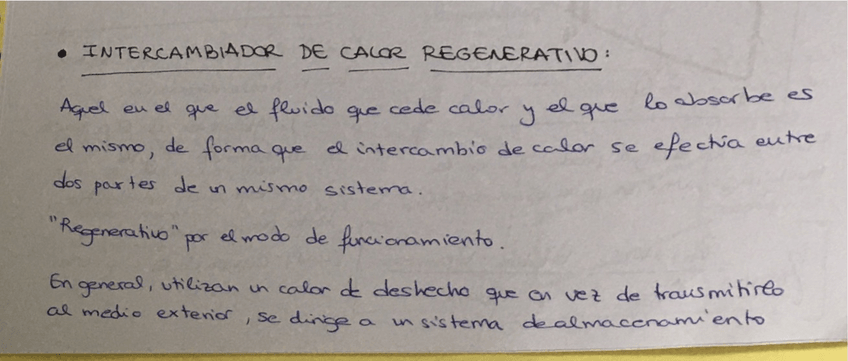 • INTERCAMBIADOR DE CALOR REGENERATIVO:
Aquel en el que el fluido que cede calor y el que lo absorbe es
el mismo, de forma que el intercambio de calor se efectúa entre
dos partes de un mismo sistema.
"Regenerativo" por el modo de funcionamiento.
En general, utilizan un calor de deshecho que en vez de transmitirlo
al medio exterior, se dirige a un sistema de almacenamiento